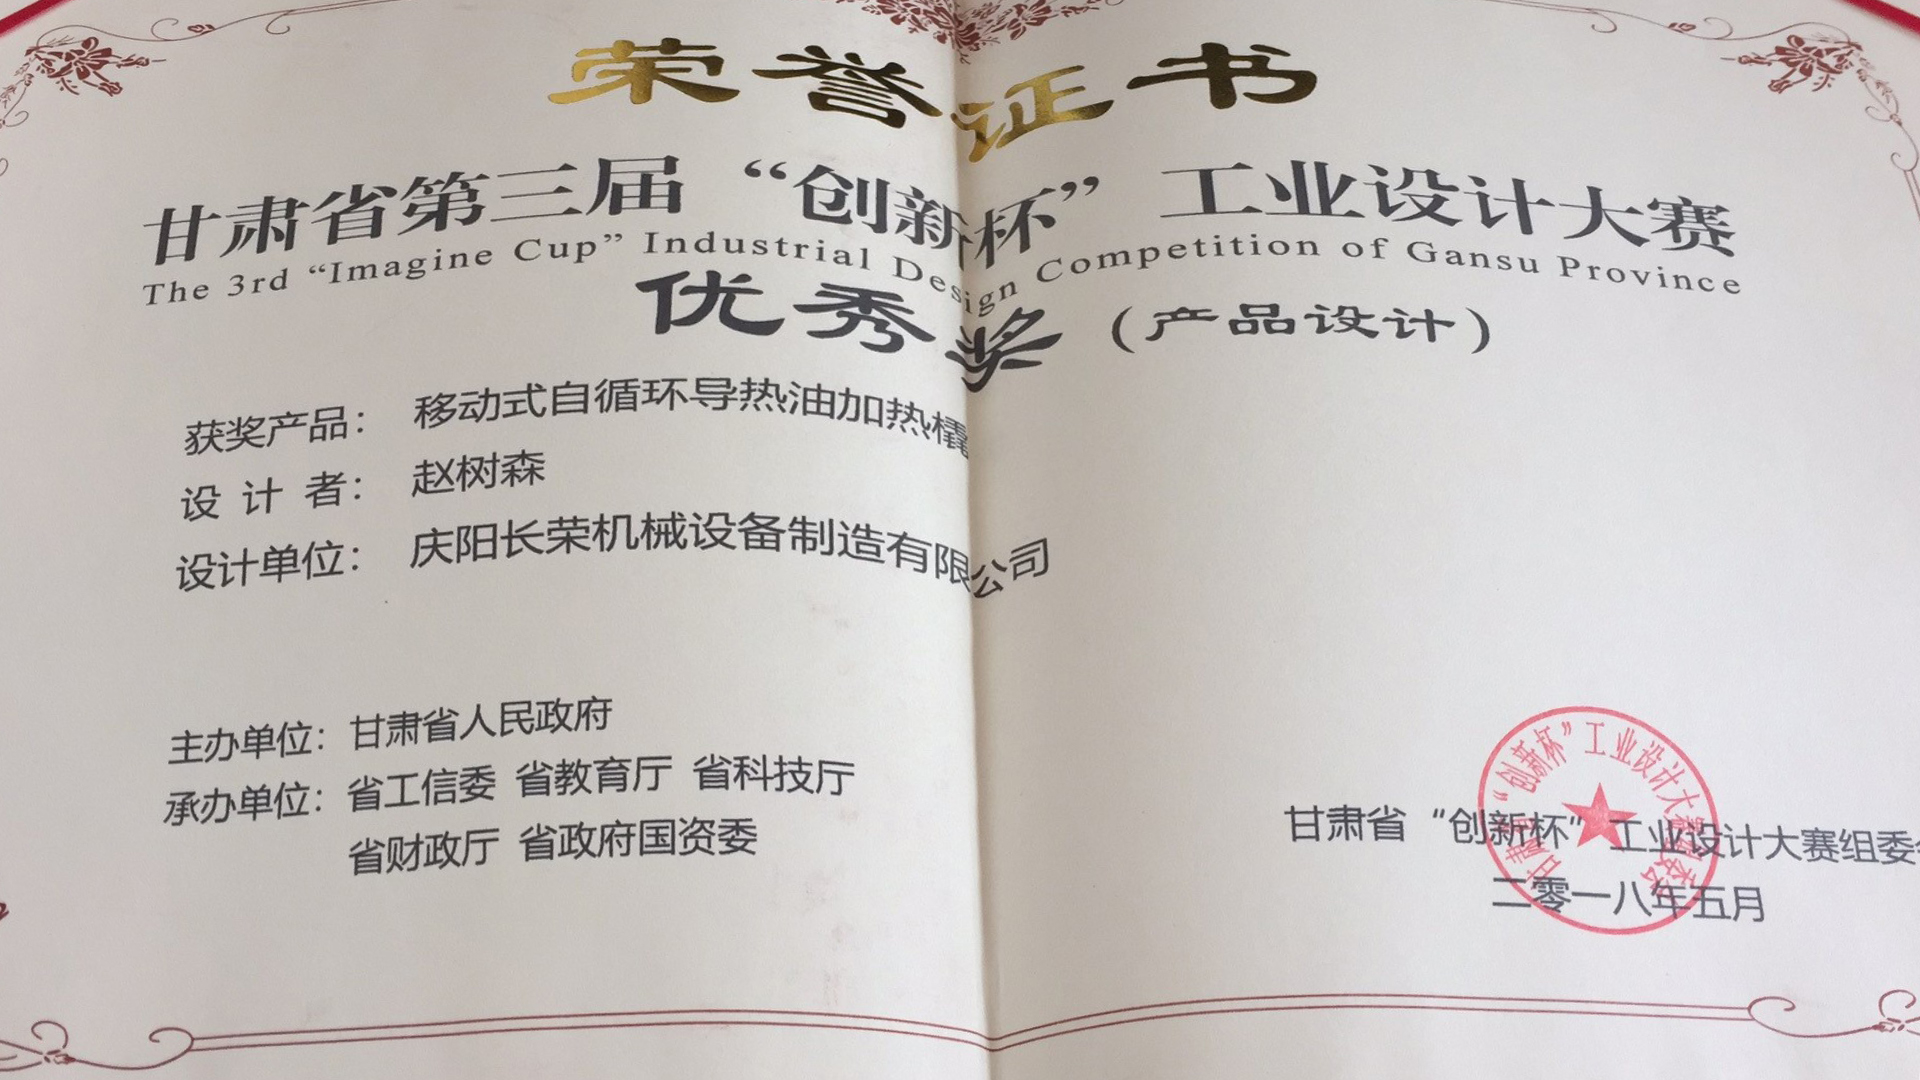 荣誉证书
甘肃省第三届“创新杯”工业设计大赛
The 3rd “Imagine Cup” Industrial Design Competition of Gansu Province
优秀奖（产品设计）
获奖产品：移动式自循环导热油加热橇
设计者：赵树森
设计单位：庆阳长荣机械设备制造有限公司
主办单位：甘肃省人民政府
承办单位：省工信委 省教育厅 省科技厅
省财政厅 省政府国资委
甘肃省“创新杯”工业设计大赛组委会
二零一八年五月
甘肃省“创新杯”工业设计大赛组委会